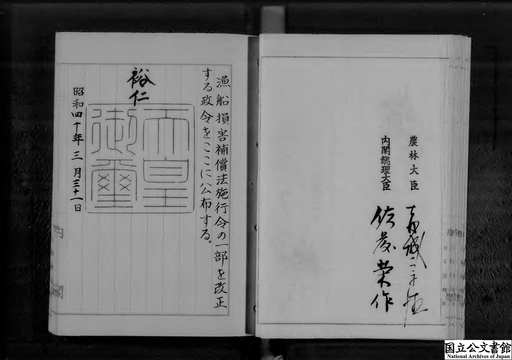 漁船損害補償法施行令の一部を改正
する政令をここに公布する。
裕仁
天皇
御璽
昭和四十年三月三十一日
農林大臣
内閣総理大臣 佐藤栄作
国立公文書館
National Archives of Japan